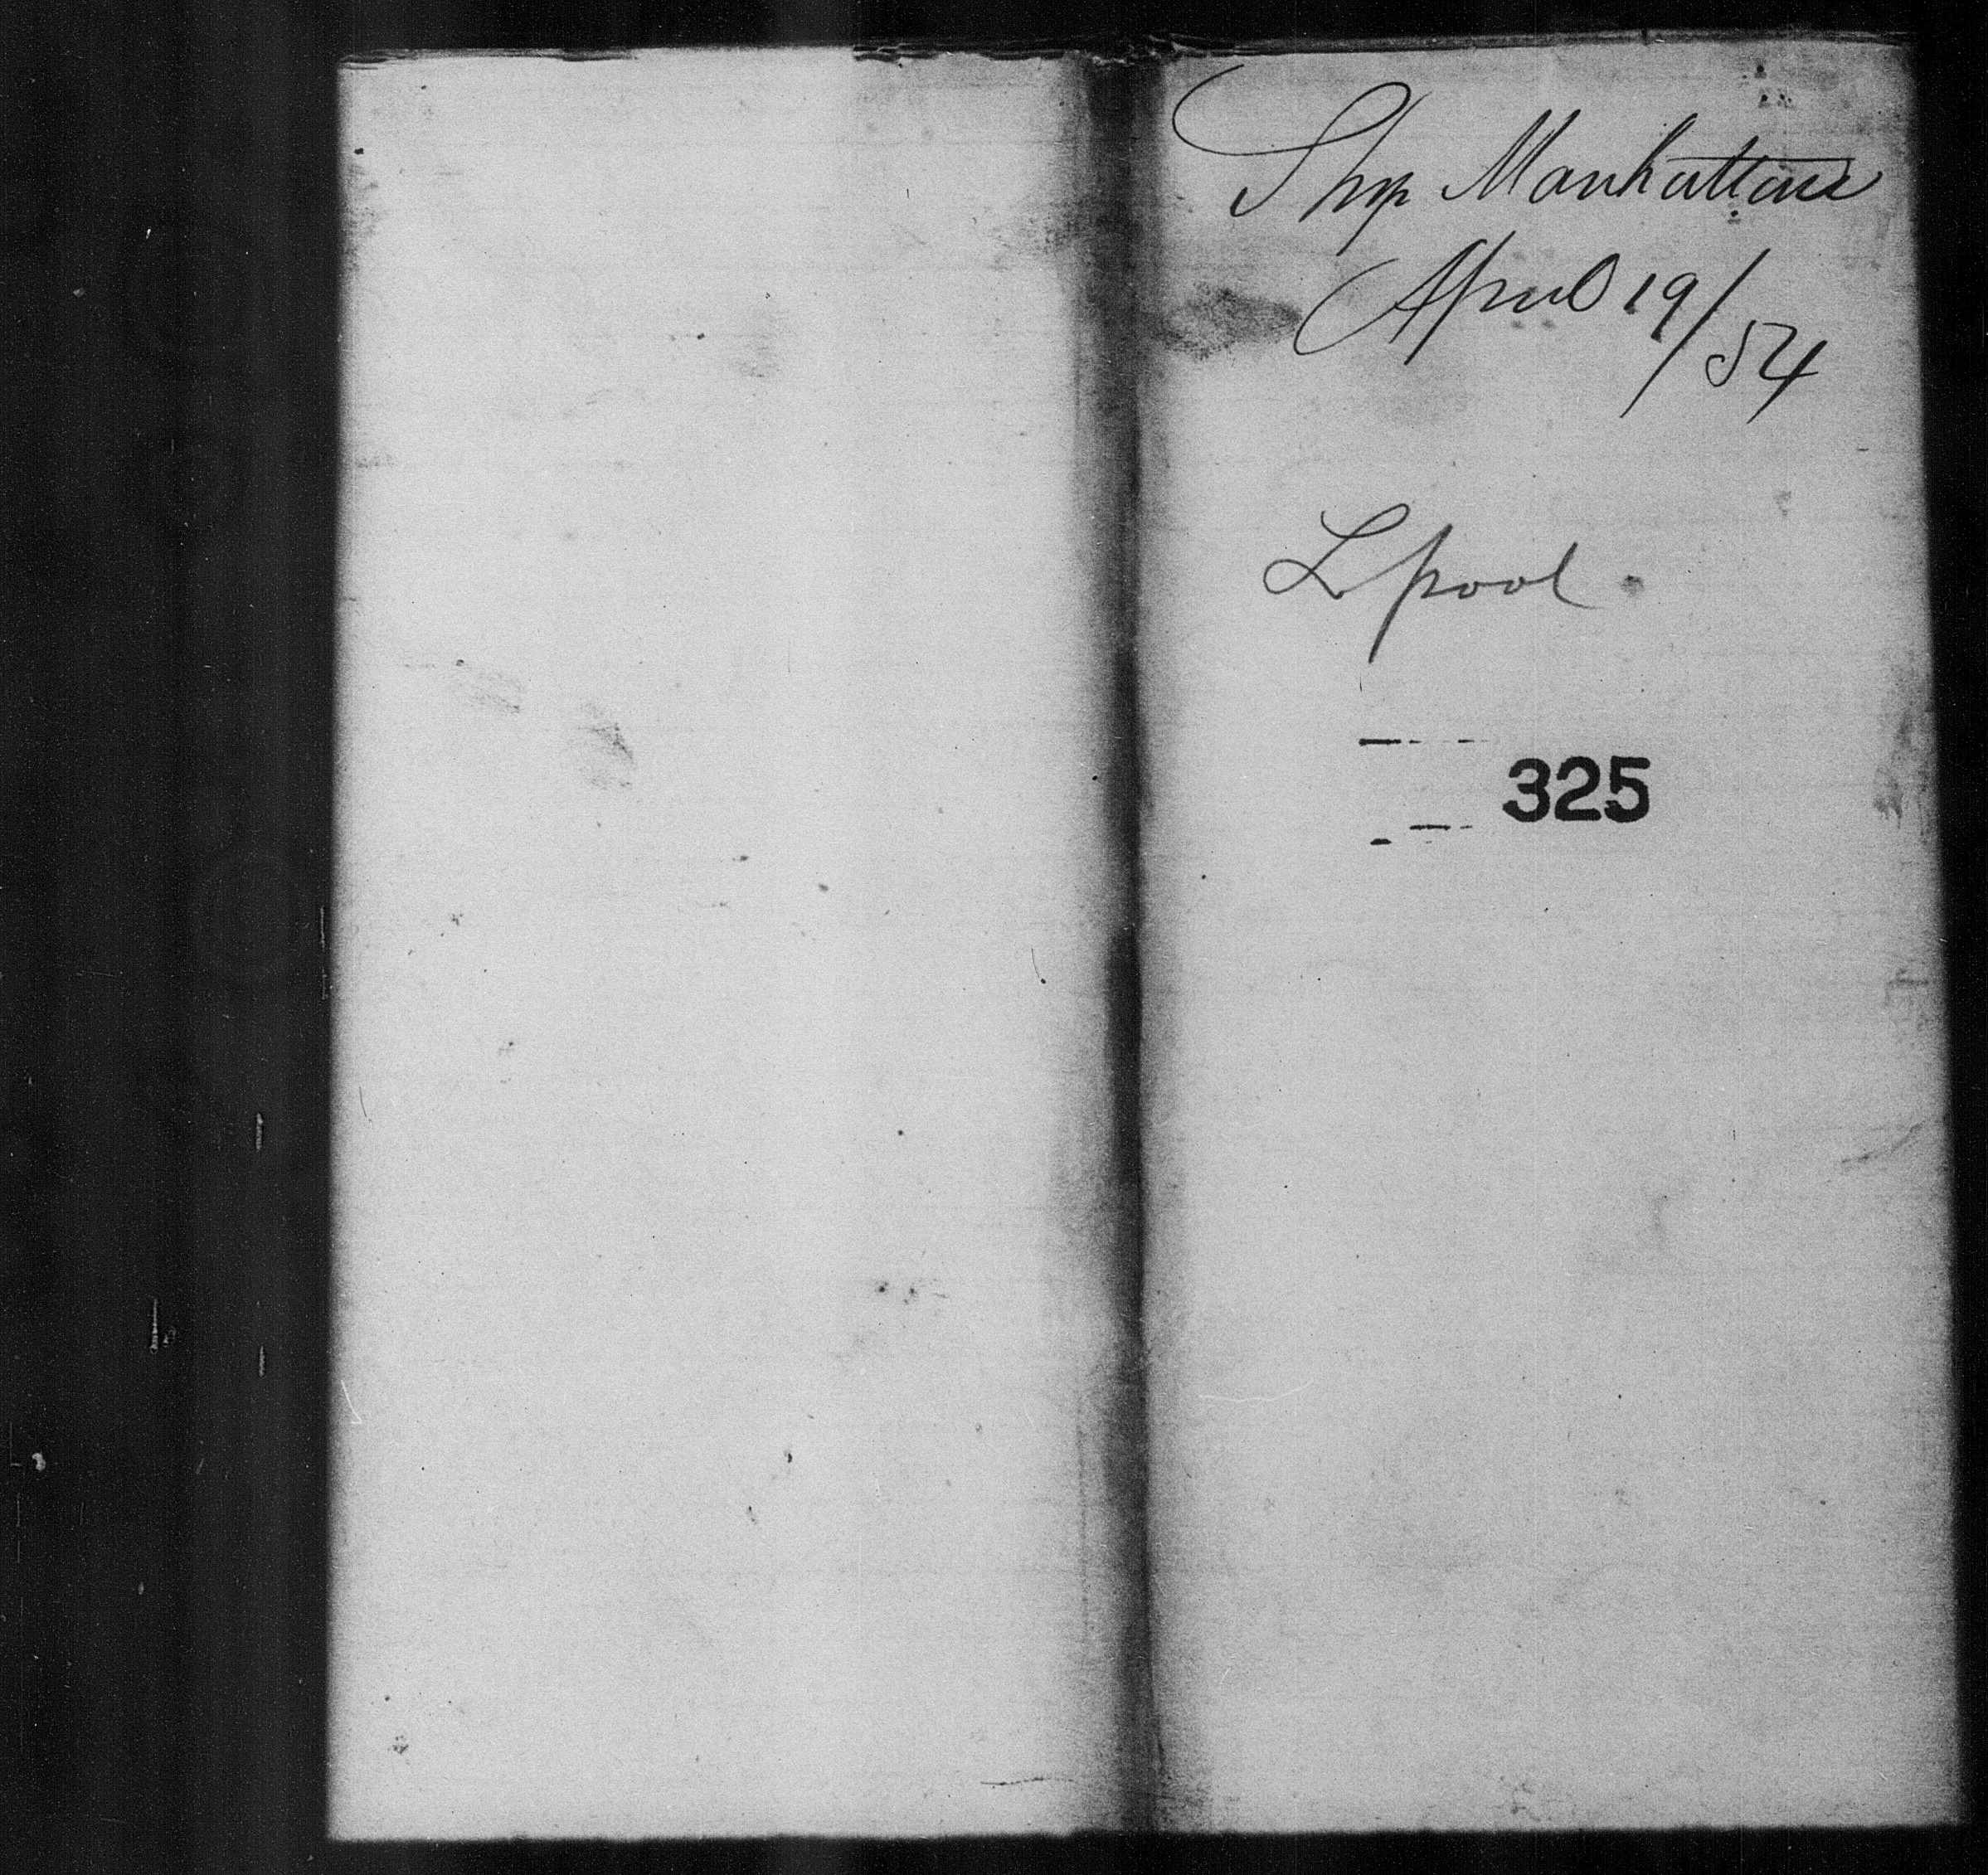 Ship Manhattan
April 19/54
Lpool.
325